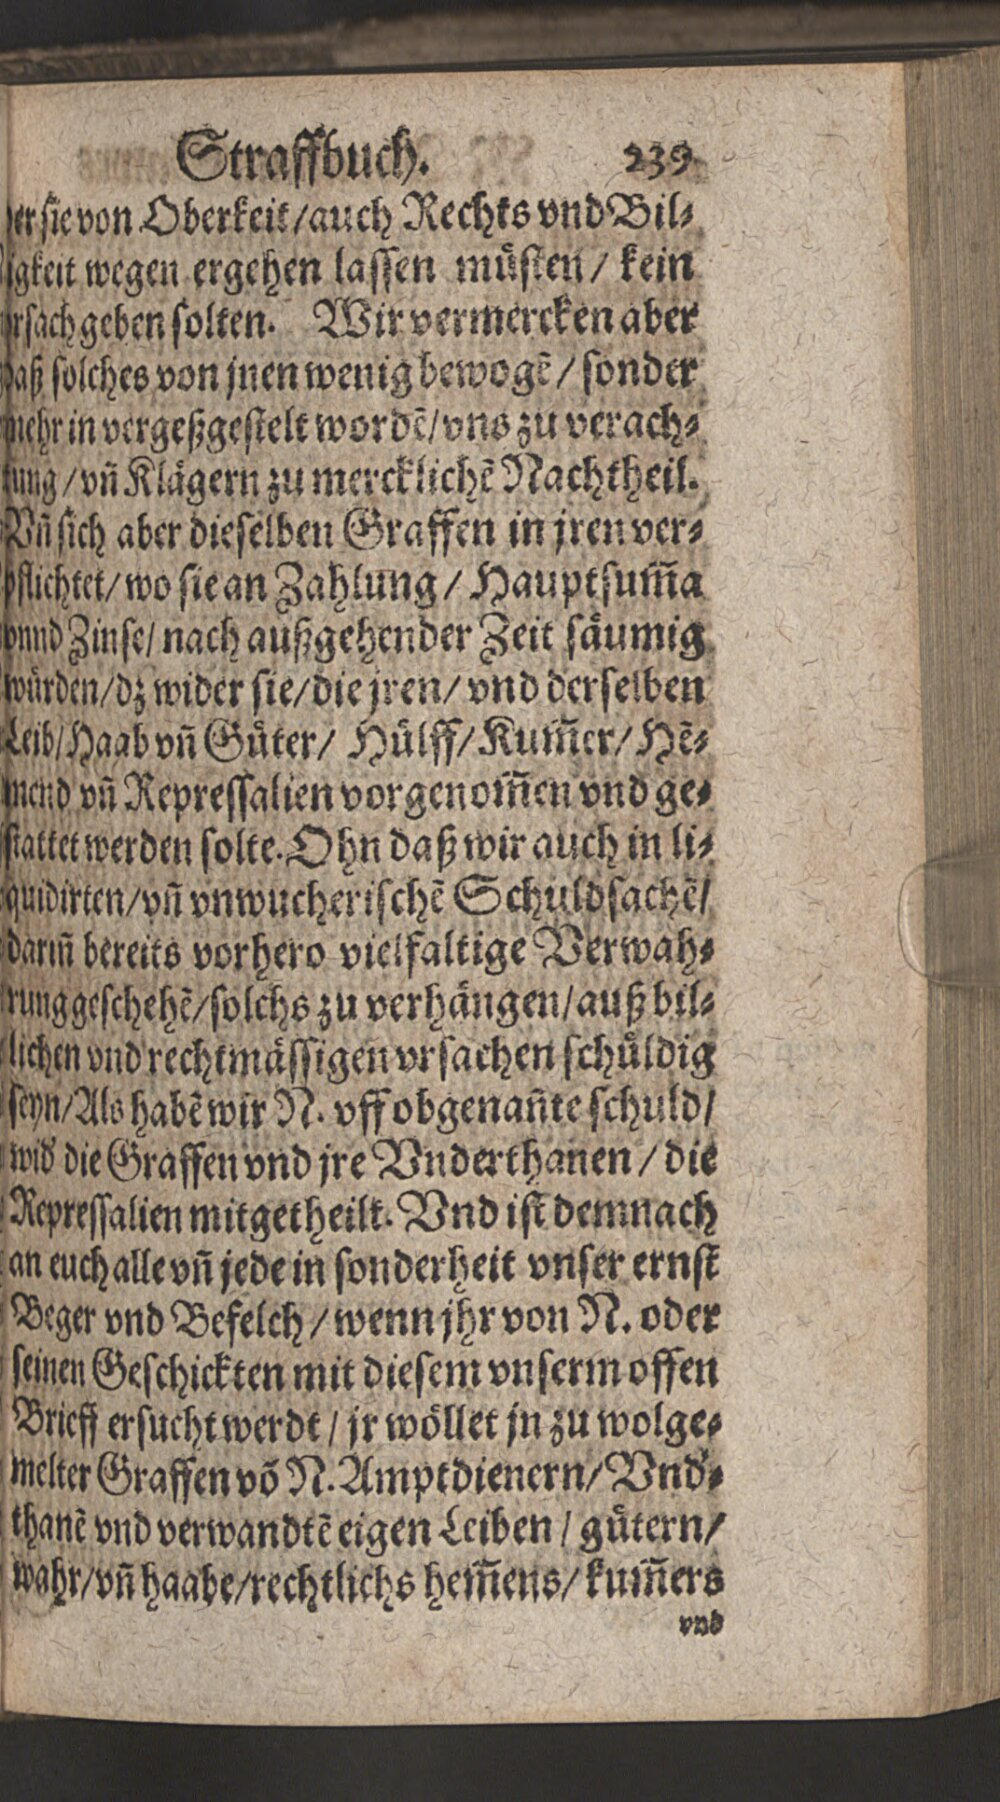 Straffbuch. 239
der sie von Oberkeit/auch Rechts vnd Bil⸗
ligkeit wegen ergehen lassen müsten/ kein
vrsach geben solten. Wir vermercken aber
daß solches von jnen wenig bewogẽ/ sonder
mehr in vergeßgestelt wordẽ/vns zu verach⸗
tung/vñ Klägern zu mercklichẽ Nachtheil.
Vñ sich aber dieselben Graffen in jren ver⸗
pflichtet/wo sie an Zahlung/ Hauptsum̃a
vnnd Zinse/ nach außgehender Zeit säumig
würden/dz wider sie/die jren/ vnd derselben
Leib/Haab vñ Güter/ Hülff/Kum̃er/Hẽ⸗
mend vñ Repressalien vorgenom̃en vnd ge⸗
stattet werden solte. Ohn daß wir auch in li⸗
quidirten/vñ vnwucherischẽ Schuldsachẽ/
dariñ bereits vorhero vielfaltige Verwah⸗
rung geschehẽ/solchs zu verhängen/auß bil⸗
lichen vnd rechtmässigen vrsachen schüldig
seyn/Als habẽ wir N. vff obgenañte schuld/
wid' die Graffen vnd jre Vnderthanen/ die
Repressalien mitgetheilt. Vnd ist demnach
an euch alle vñ jede in sonderheit vnser ernst
Beger vnd Befelch/wenn jhr von N. oder
seinen Geschickten mit diesem vnserm offen
Brieff ersucht werdt/ jr wöllet jn zu wolge⸗
melter Graffen võ N. Amptdienern/Vnd'⸗
thanẽ vnd verwandtẽ eigen Leiben/ gütern/
wahr/vñ haabe/rechtlichs hem̃ens/kum̃ers
vnd